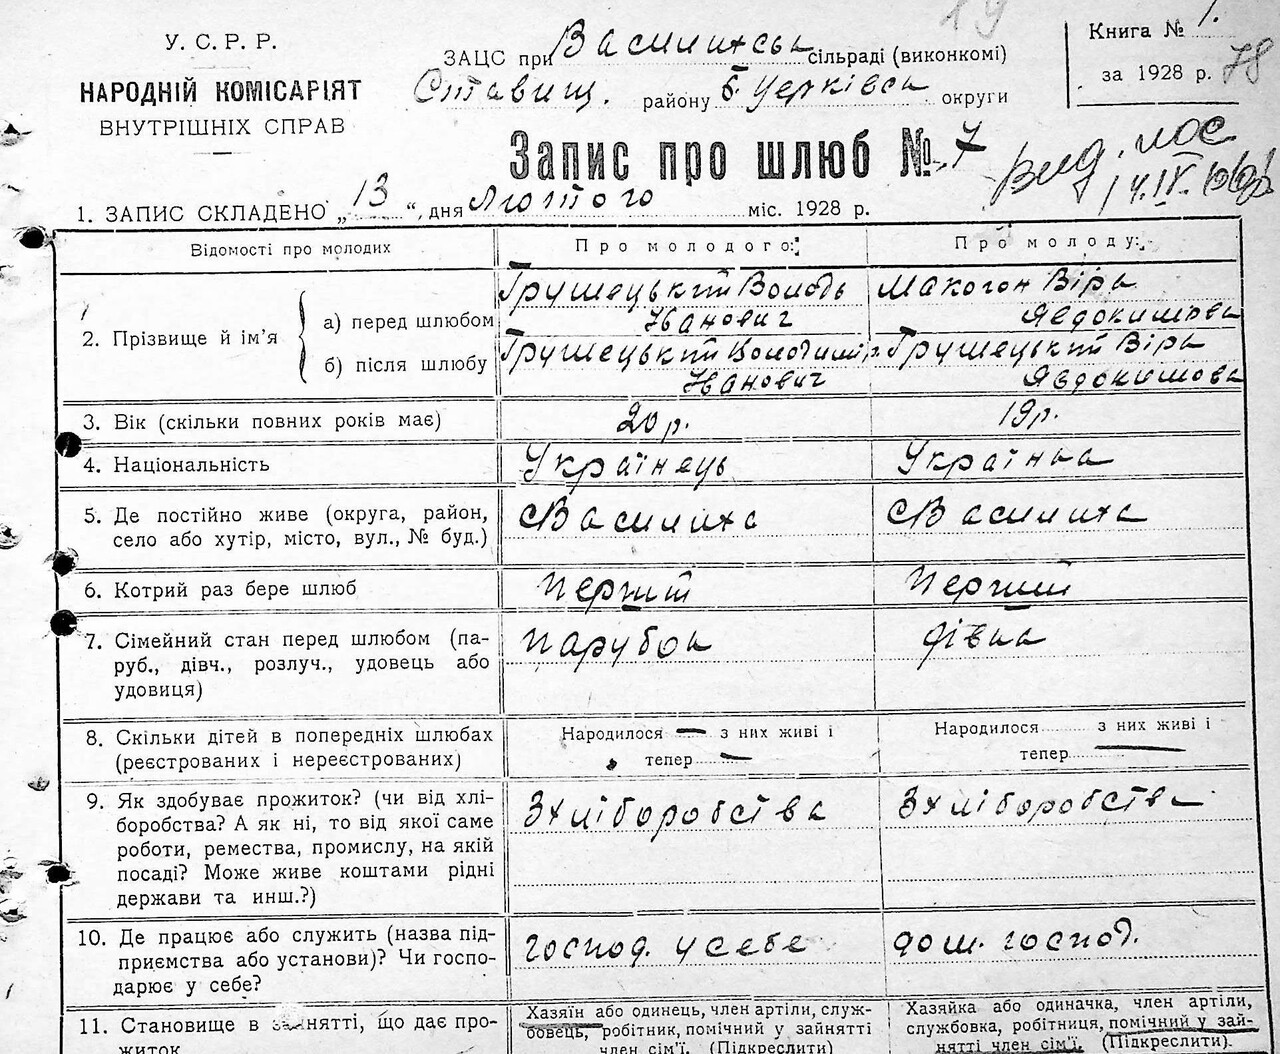 У. С. Р. Р.
НАРОДНІЙ КОМІСАРІЯТ
ВНУТРІШНІХ СПРАВ
19
ЗАЦС при Василихсь сільраді (виконкомі)
Ставищ. району Б. Церківськ округи
Книга № 1.
за 1928 р. 78
Запис про шлюб № 7
Вид.
14.IV.
1. ЗАПИС СКЛАДЕНО „13“, дня Лютого міс. 1928 р.
Відомості про молодих
Про молодого:
Про молоду:
2. Прізвище й ім'я
а) перед шлюбом
Грушецький Володь
Іванович
Макогон Віра
Явдокимова
б) після шлюбу
Грушецький Володимір.
Іванович
Грушецький Віра
Явдокимова
3. Вік (скільки повних років має)
20 р.
19 р.
4. Національність
Українець
Українка
5. Де постійно живе (округа, район,
село або хутір, місто, вул., № буд.)
с Василиха
с Василиха
6. Котрий раз бере шлюб
Перший
Перший
7. Сімейний стан перед шлюбом (па-
руб., дівч., розлуч., удовець або
удовиця)
Парубок
дівка
8. Скільки дітей в попередніх шлюбах
(реєстрованих і нереєстрованих)
Народилося — з них живі і
тепер —
Народилося з них живі і
тепер —
9. Як здобуває прожиток? (чи від хлі-
боробства? А як ні, то від якої саме
роботи, ремества, промислу, на якій
посаді? Може живе коштами рідні
держави та инш.?)
З хліборобства
З хліборобства
10. Де працює або служить (назва під-
приємства або установи)? Чи госпо-
дарює у себе?
господ. у себе
дом. господ.
11. Становище в занятті, що дає про-
житок
Хазяїн або одинець, член артіли, служ-
бовець, робітник, помічний у зайнятті
член сім'ї. (Підкреслити)
Хазяйка або одиначка, член артіли,
службовка, робітниця, помічний у зай-
нятті член сім'ї. (Підкреслити.)